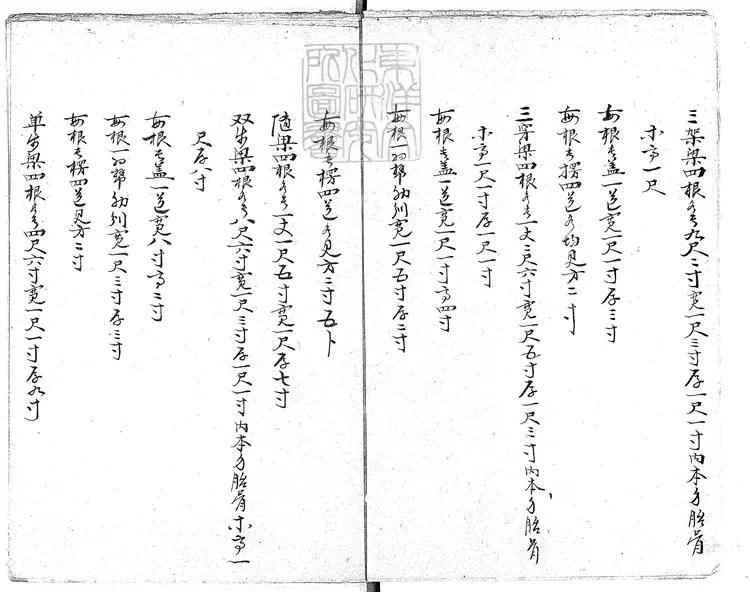 三架梁四根各長九尺二寸寬一尺三寸厚一尺一寸內本身胎骨
木高一尺
每根長蓋一道寬一尺一寸厚三寸
每根長楞四道各均見方二寸
三穿梁四根各長一丈二尺六寸寬一尺五寸厚一尺三寸內本身胎骨
木高一尺一寸厚一尺一寸
每根長蓋一道寬一尺一寸高四寸
每根二面幫貼別寬一尺五寸厚二寸
每根長楞四道各見方二寸五卜
隨梁四根各長一丈一尺五寸寬一尺厚七寸
双步梁四根各長八尺六寸寬一尺三寸厚一尺一寸內本身胎骨木高一
尺厚八寸
每根長蓋一道寬八寸高三寸
每根二面幫貼別寬一尺三寸厚三寸
每根長楞四道見方二寸
单步梁四根各長四尺六寸寬一尺一寸厚九寸